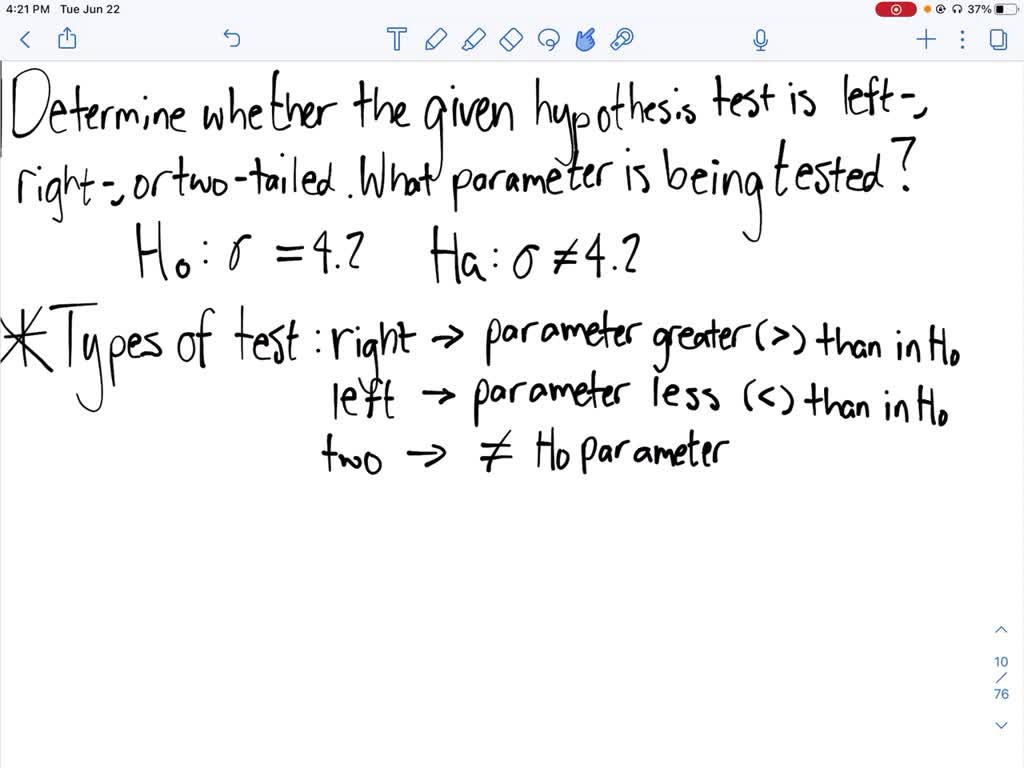 4:21 PM Tue Jun 22
37%
Determine whether the given hypothesis test is left-,
right-, or two-tailed. What parameter is being tested?
H₀: σ = 4.2 Ha: σ ≠ 4.2
* Types of test: right → parameter greater (>) than in H₀
left → parameter less (<) than in H₀
two → ≠ H₀ parameter
10
/
76